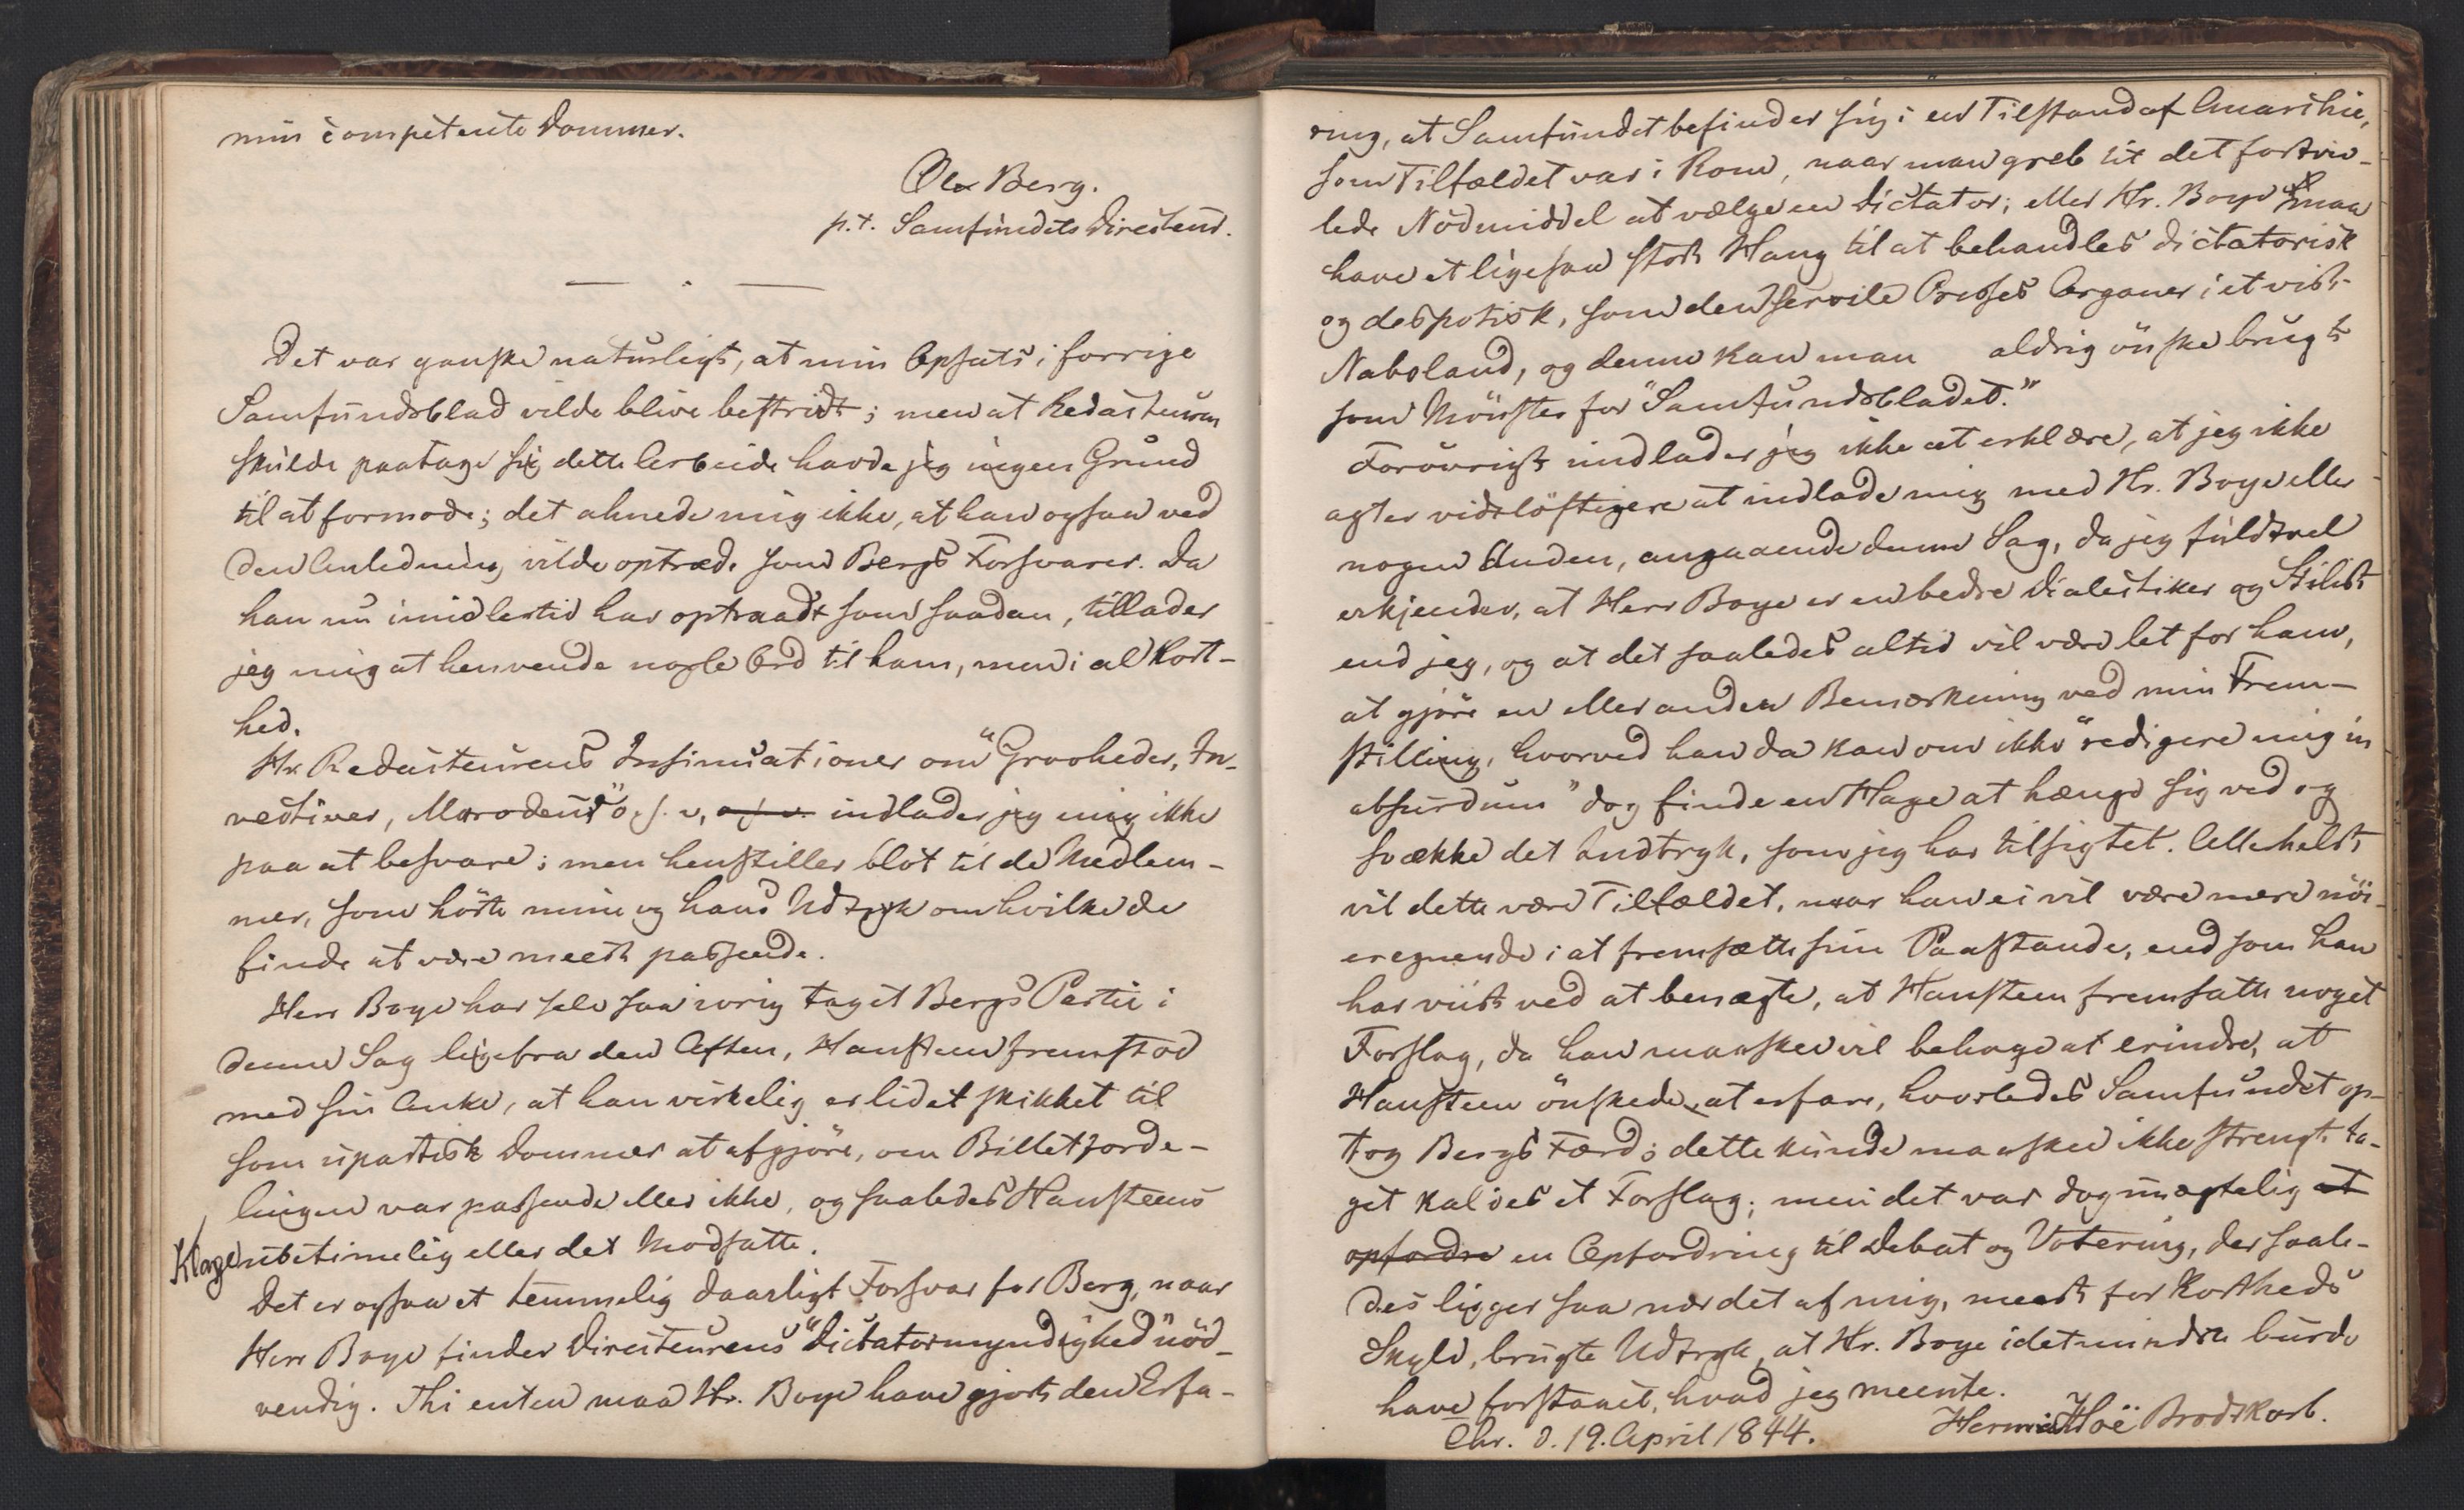 min competente Dommer.
Ole Berg.
p.t. Samfundets Directeur.
Det var ganske naturligt, at min Opsats i forrige
Samfundsblad vilde blive bestridt; men at Redacteuren
skulde paatage sig dette Arbeide havde jeg ingen Grund
til at formode; det ahnede mig ikke, at han ogsaa ved
den Anledning vilde optræde som Bergs Forsvarer. Da
han nu imidlertid har optraadt som saadan, tillader
jeg mig at henvende nogle Ord til ham, men i al Kort-
hed.
Hr Redacteurens Insinuationer om "Grovheder, In-
vectiver, Marodeur" o. s. v, o s v. indlader jeg mig ikke
paa at besvare; men henstiller blot til de Medlem-
mer, som hörte mine og hans Udtryk om hvilke de
finde at være meest passende.
Herr Boye har selv saa ivrig taget Bergs Partie i
denne Sag lige fra den Aften, Hansteen fremstod
med sin Anke, at han virkelig er lidet skikket til
som upartisk Dommer at afgjöre, om Billetforde-
lingen var passende eller ikke, og saaledes Hansteens
Klage ubetimelig eller det Modsatte.
Det er ogsaa et temmelig daarligt Forsvar for Berg, naar
Herr Boye finder Directeurens "Dictatormyndighed" nöd-
vendig. Thi enten maa Hr. Boye have gjort den Erfa-
ring, at Samfundet befinder sig i en Tilstand af Anarchie,
som Tilfældet var i Rom, naar man greb til det fortviv-
lede Nödmiddel at vælge en Dictator; eller Hr. Boye maa
have et ligesaa stort Hang til at behandles dictatorisk
og despotisk, som den servile Presses Organer i et vist
Naboland, og denne kan man aldrig önske brugt
som Mönster for "Samfundsbladet."
Forövrigt indlader jeg ikke at erklære, at jeg ikke
agter vidtlöftigere at indlade mig med Hr. Boye eller
nogen Anden, angaaende denne Sag, da jeg fuldtvel
erkjender, at Herr Boye er en bedre Dialectiker og Stilist
end jeg, og at det saaledes altid vil være let for ham,
at gjöre en eller anden Bemærkning ved min Frem-
stilling, hvorved han da kan om ikke "redigere mig in
absurdum" dog finde en Hage at hænge sig ved og
svække det Indtryk, som jeg har tilsigtet. Allerhelst
vil dette være Tilfældet, naar han ei vil være mere nöi-
eregnende i at fremsætte sine Paastande, end som han
har viist ved at benægte, at Hansteen fremsatte noget
Forslag, da han maaskee vil behage at erindre, at
Hansteen önskede at erfare, hvorledes Samfundet op-
tog Bergs Færd; dette kunde maaskee ikke strengt ta-
get kaldes et Forslag; men det var dog unægtelig at
opfordre en Opfordring til Debat og Votering, der saale-
des ligger saa nær det af mig, meest for Kortheds
Skyld, brugte Udtryk, at Hr. Boye idetmindste burde
have forstaaet, hvad jeg meente.
Chr. d. 19. April 1844.
Herm Hoë Brodtkorb.